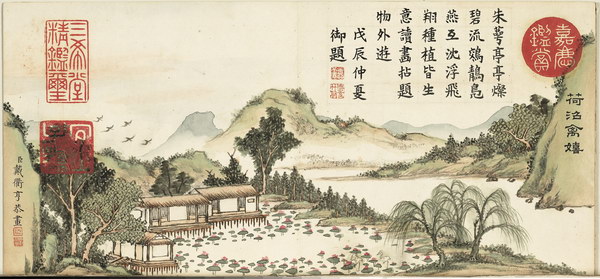 荷沼禽嬉
嘉慶鑑賞
朱萼亭亭燦
碧流鵁鶄鳧
燕互沈浮飛
翔種植皆生
意讀畫拈題
物外遊
戊辰仲夏
御題
三希堂
精鑑璽
臣戴衢亨恭畫